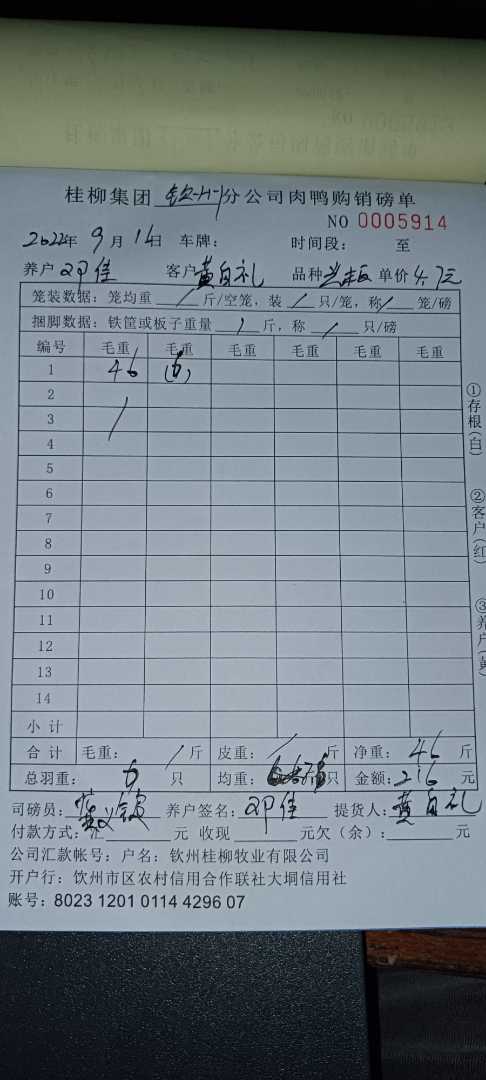 桂柳集团 钦州分公司肉鸭购销磅单
NO 0005914
2022年 9月 14日 车牌： 时间段： 至
养户 邓佳 客户 黄自礼 品种 单价 4.7元
笼装数据：笼均重 / 斤/空笼，装 / 只/笼，称 / 笼/磅
捆脚数据：铁筐或板子重量 / 斤，称 / 只/磅
编号 毛重 毛重 毛重 毛重 毛重 毛重
1 46 (6)
2
3
4
5
6
7
8
9
10
11
12
13
14
小计
合计 毛重： / 斤 皮重： / 斤 净重： 46 斤
总羽重： 6 只 均重： 只 金额：216 元
司磅员： 养户签名：邓佳 提货人：黄自礼
付款方式：汇 元 收现 元欠（余）： 元
公司汇款帐号：户名：钦州桂柳牧业有限公司
开户行：钦州市区农村信用合作联社大垌信用社
账号：8023 1201 0114 4296 07
①存根（白）
②客户（红）
③养户（黄）